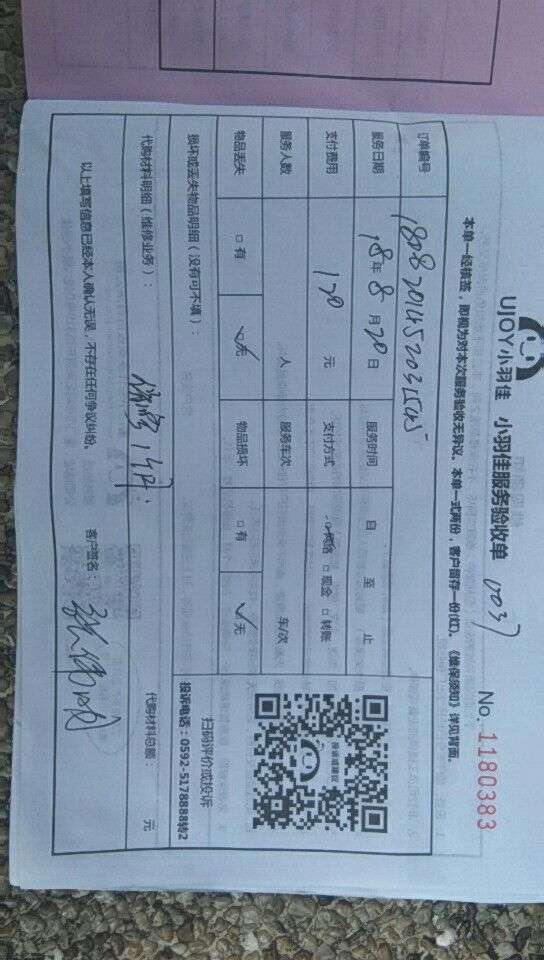 UJOY小羽佳 小羽佳服务验收单
No. 1180383
本单一经核签,即视为对本次服务验收无异议。本单一式两份,客户留存一份(红)。《维保须知》详见背面。
订单编号
服务日期 18年 8月20日 服务时间 自 至 止
支付费用 120 元 支付方式 网络 □现金 □转账
服务人数 人 服务车次 车/次
物品丢失 □有 ☑无 物品损坏 □有 ☑无
扫码评价或投诉
投诉电话:0592-5178888转2
损坏或丢失物品明细(没有可不填):
代购材料明细(维修业务): 代购材料总额: 元
以上填写信息已经本人确认无误,不存在任何争议纠纷。 客户签名: